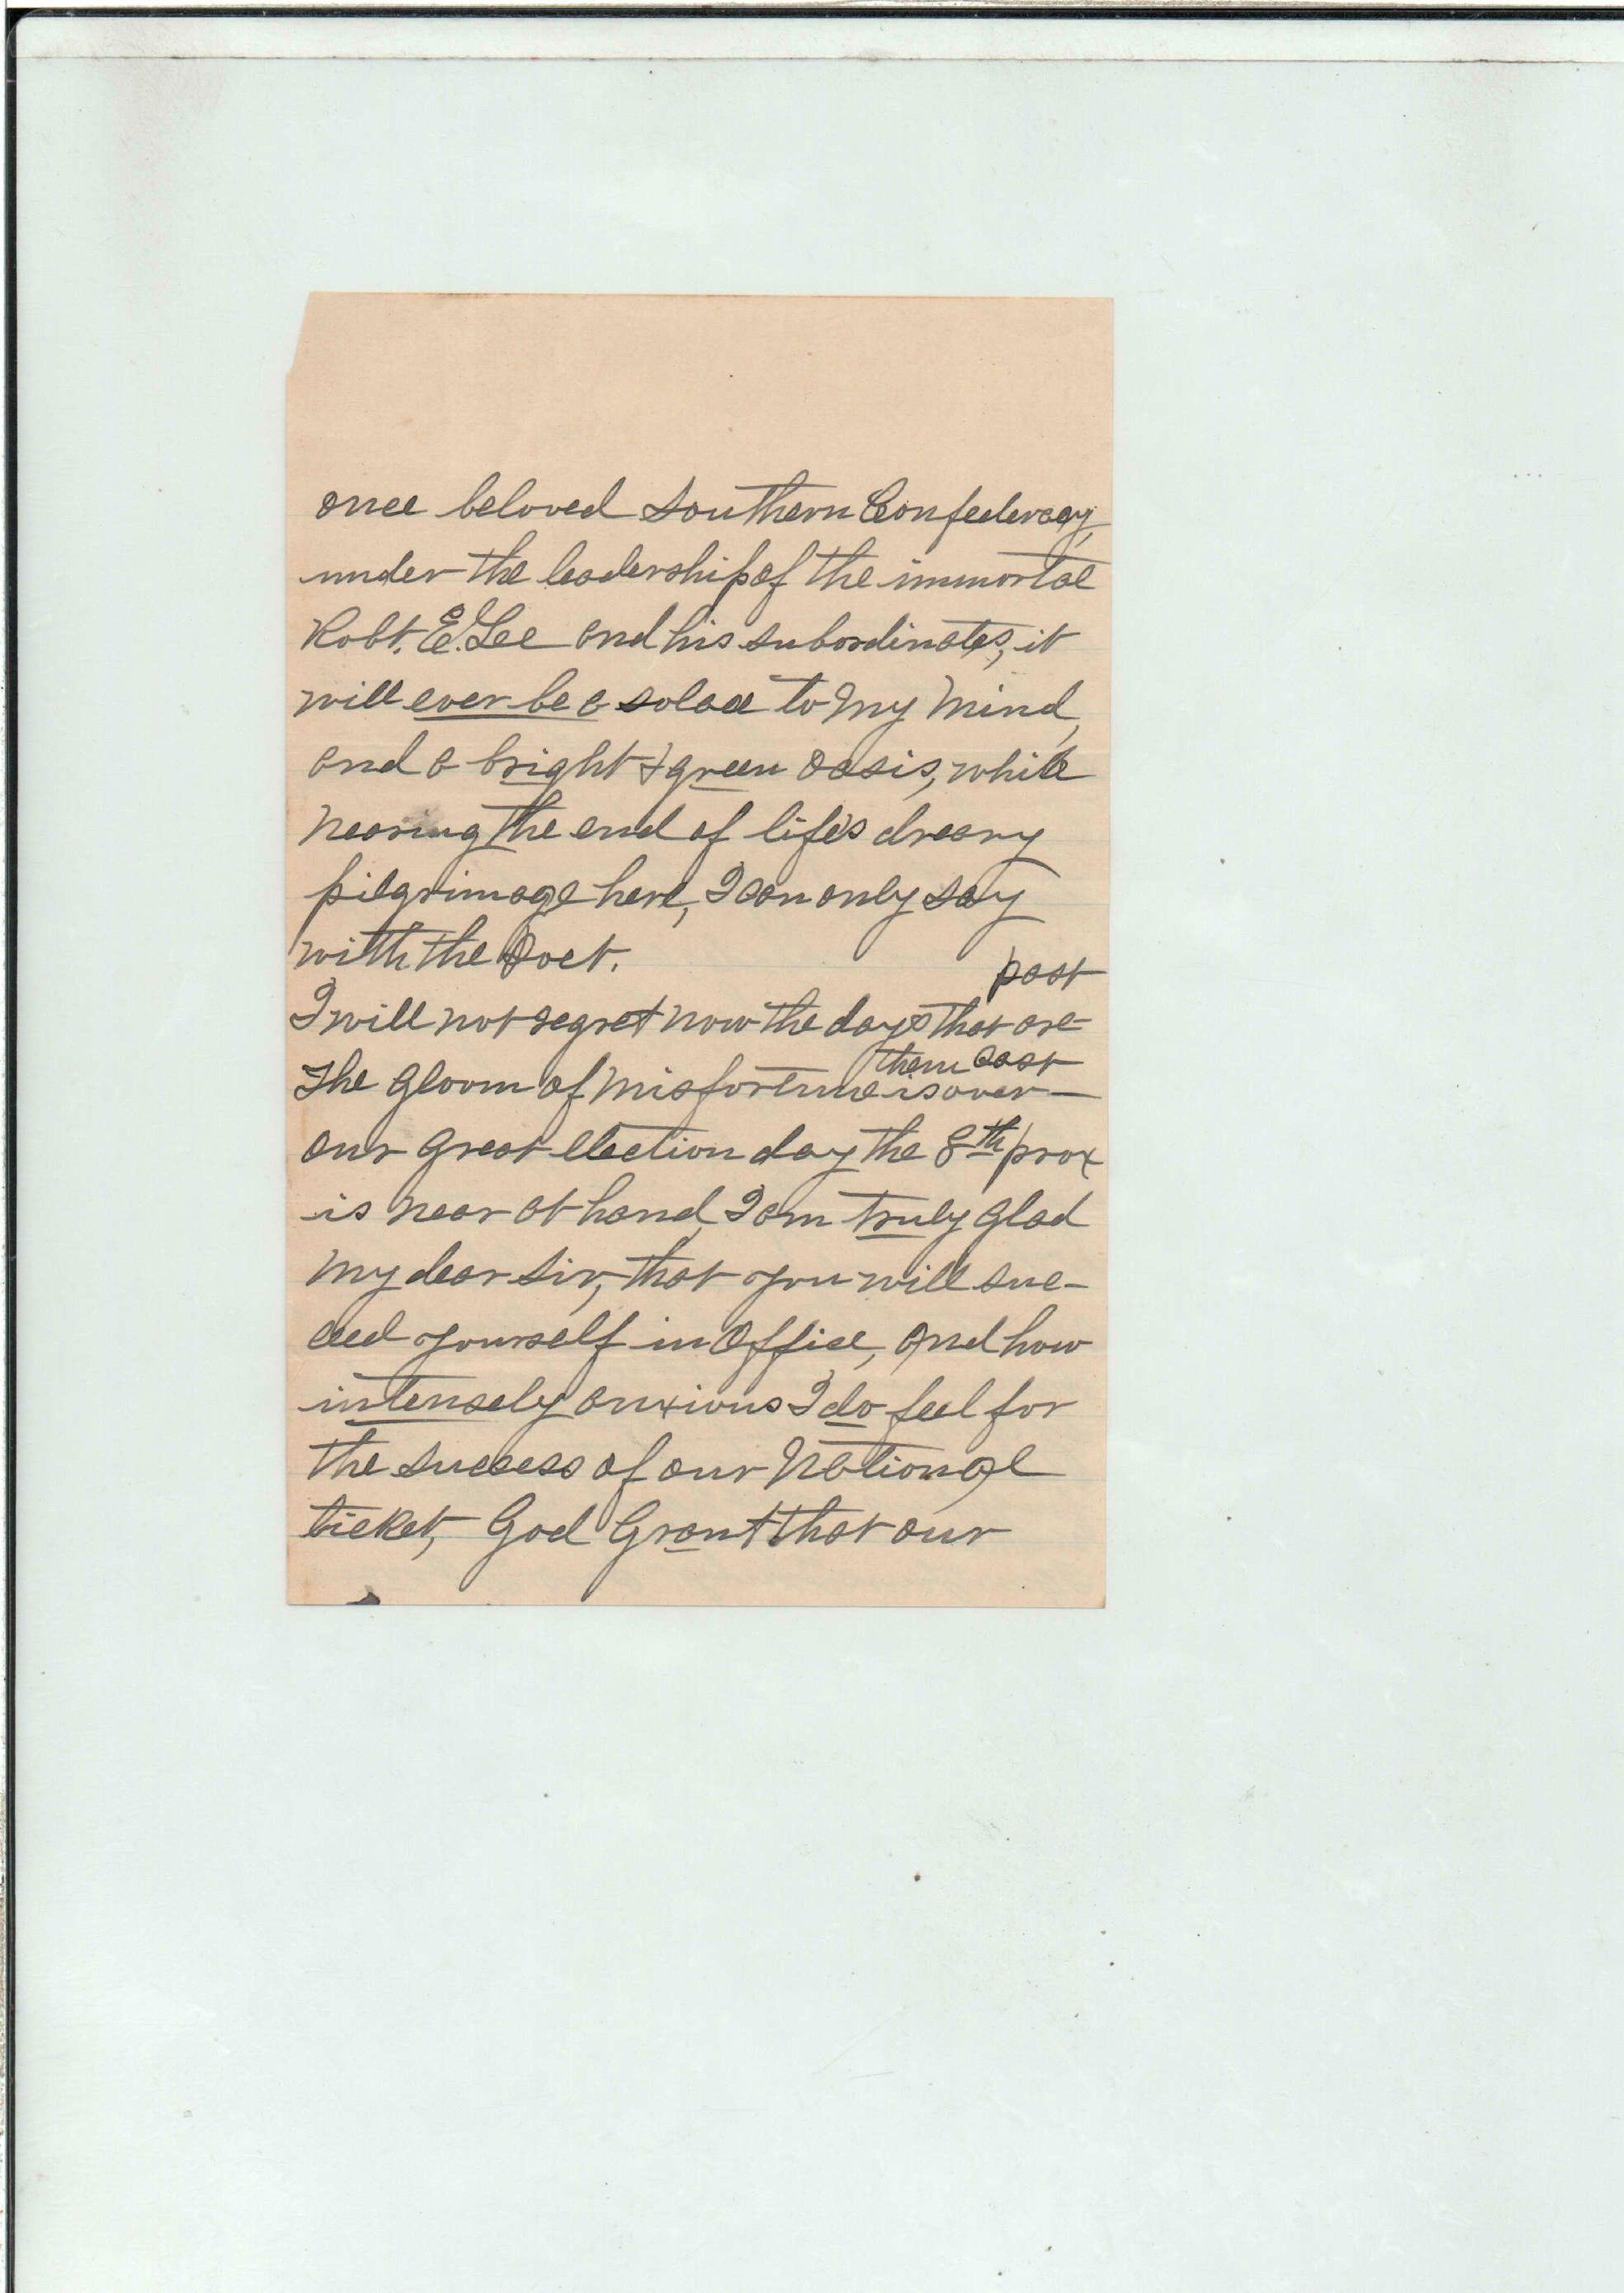 once beloved Southern Confederacy,
under the leadership of the immortal
Robt. E. Lee and his subordinates, it
will ever be a solace to my mind,
and a bright & green oasis, while
nearing the end of life's dreary
pilgrimage here, I can only say
with the Poet.
past
I will not regret now the days that are
them cast
The gloom of misfortune is over—
our great election day the 8th prox
is near at hand, I am truly glad
my dear sir, that you will suc-
ceed yourself in office, and how
intensely anxious I do feel for
the success of our National
ticket, God Grant that our